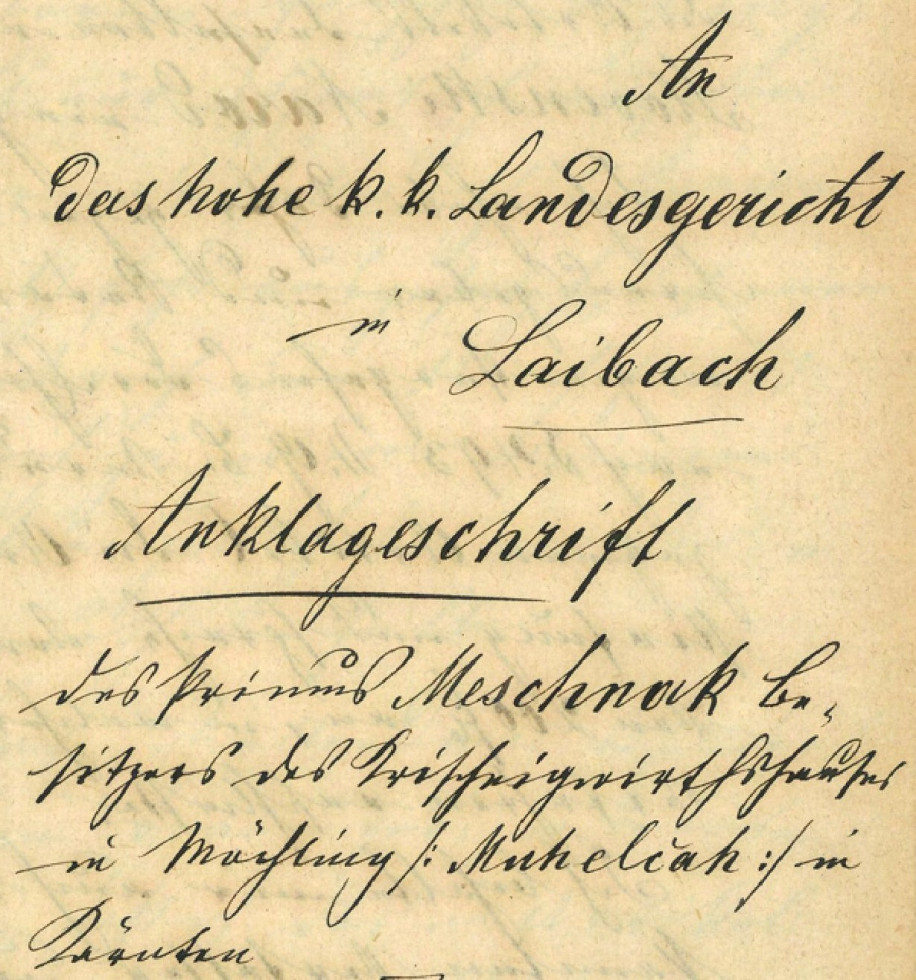 An
das hohe k. k. Landesgericht
in
Laibach
Anklageschrift
des Primus Meschnak Be-
sitzers des Krischeigwirthshauses
in Möchling /: Muhelčah :/ in
Kärnten